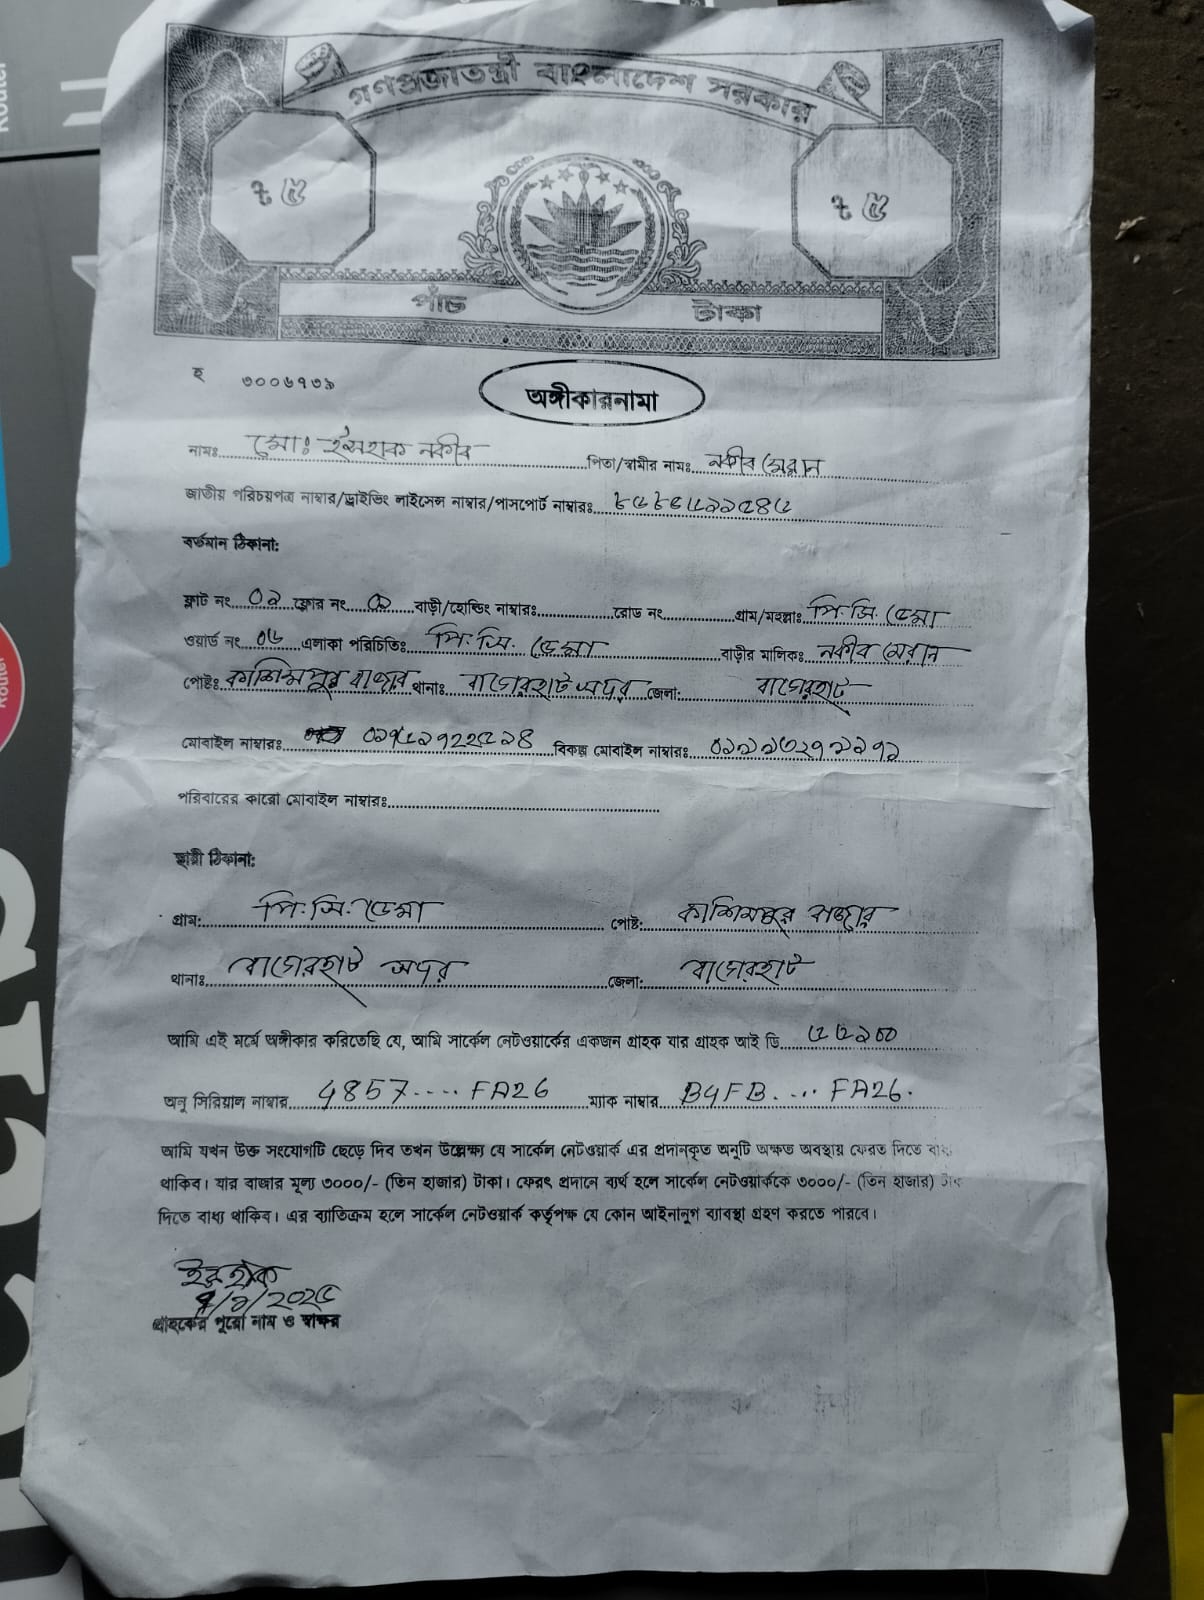 গণপ্রজাতন্ত্রী বাংলাদেশ সরকার
৳ ৫ ৳ ৫
পাঁচ টাকা
হ ৩০০৬৭৩৯
অঙ্গীকারনামা
নামঃ মোঃ ইসহাক নকীব পিতা/স্বামীর নামঃ নকীব
জাতীয় পরিচয়পত্র নাম্বার/ড্রাইভিং লাইসেন্স নাম্বার/পাসপোর্ট নাম্বারঃ
বর্তমান ঠিকানা:
ফ্লাট নং ০১ ফ্লোর নং ০১ বাড়ী/হোল্ডিং নাম্বারঃ রোড নং গ্রাম/মহল্লাঃ পি.সি. ডেমা
ওয়ার্ড নং ০৬ এলাকা পরিচিতিঃ পি.সি. ডেমা বাড়ীর মালিকঃ নকীব
পোষ্টঃ কাশিমপুর বাজার থানাঃ বাগেরহাট সদর জেলা: বাগেরহাট
মোবাইল নাম্বারঃ বিকল্প মোবাইল নাম্বারঃ
পরিবারের কারো মোবাইল নাম্বারঃ
স্থায়ী ঠিকানা:
গ্রাম: পি.সি. ডেমা পোষ্ট: কাশিমপুর বাজার
থানাঃ বাগেরহাট সদর জেলা: বাগেরহাট
আমি এই মর্মে অঙ্গীকার করিতেছি যে, আমি সার্কেল নেটওয়ার্কের একজন গ্রাহক যার গ্রাহক আই ডি
অনু সিরিয়াল নাম্বার 4857....FA26 ম্যাক নাম্বার B4FB....FA26.
আমি যখন উক্ত সংযোগটি ছেড়ে দিব তখন উল্লেক্ষ্য যে সার্কেল নেটওয়ার্ক এর প্রদানকৃত অনুটি অক্ষত অবস্থায় ফেরত দিতে
থাকিব। যার বাজার মূল্য ৩০০০/- (তিন হাজার) টাকা। ফেরৎ প্রদানে ব্যর্থ হলে সার্কেল নেটওয়ার্ককে ৩০০০/- (তিন হাজার)
দিতে বাধ্য থাকিব। এর ব্যাতিক্রম হলে সার্কেল নেটওয়ার্ক কর্তৃপক্ষ যে কোন আইনানুগ ব্যাবস্থা গ্রহণ করতে পারবে।
ইসহাক
৭/১/২০২৫
গ্রাহকের পুরো নাম ও স্বাক্ষর